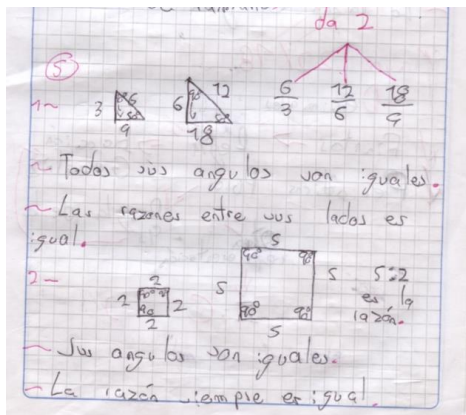 da 2
5
1~ 3 6 9 6 12 18 6/3 12/6 18/9
~ Todos sus angulos son iguales.
~ Las razones entre sus lados es
igual.
2- 2 2 2 2 90° 5 5 5 5 90° 90° 90° 90° 5:2
es la
razón.
~ Sus angulos son iguales.
~ La razón siempre es igual.